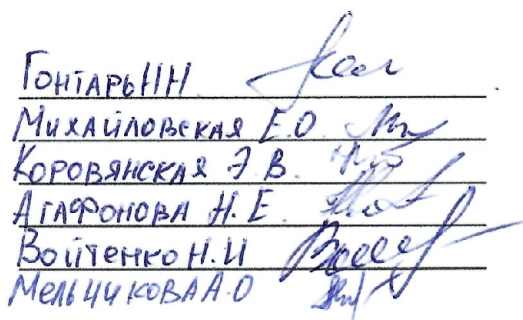 Гонтарь Н Н.
Михайловская Е.О.
Коровянская Э. В.
Агафонова Н. Е.
Войтенко Н. И
Мельчикова А.О